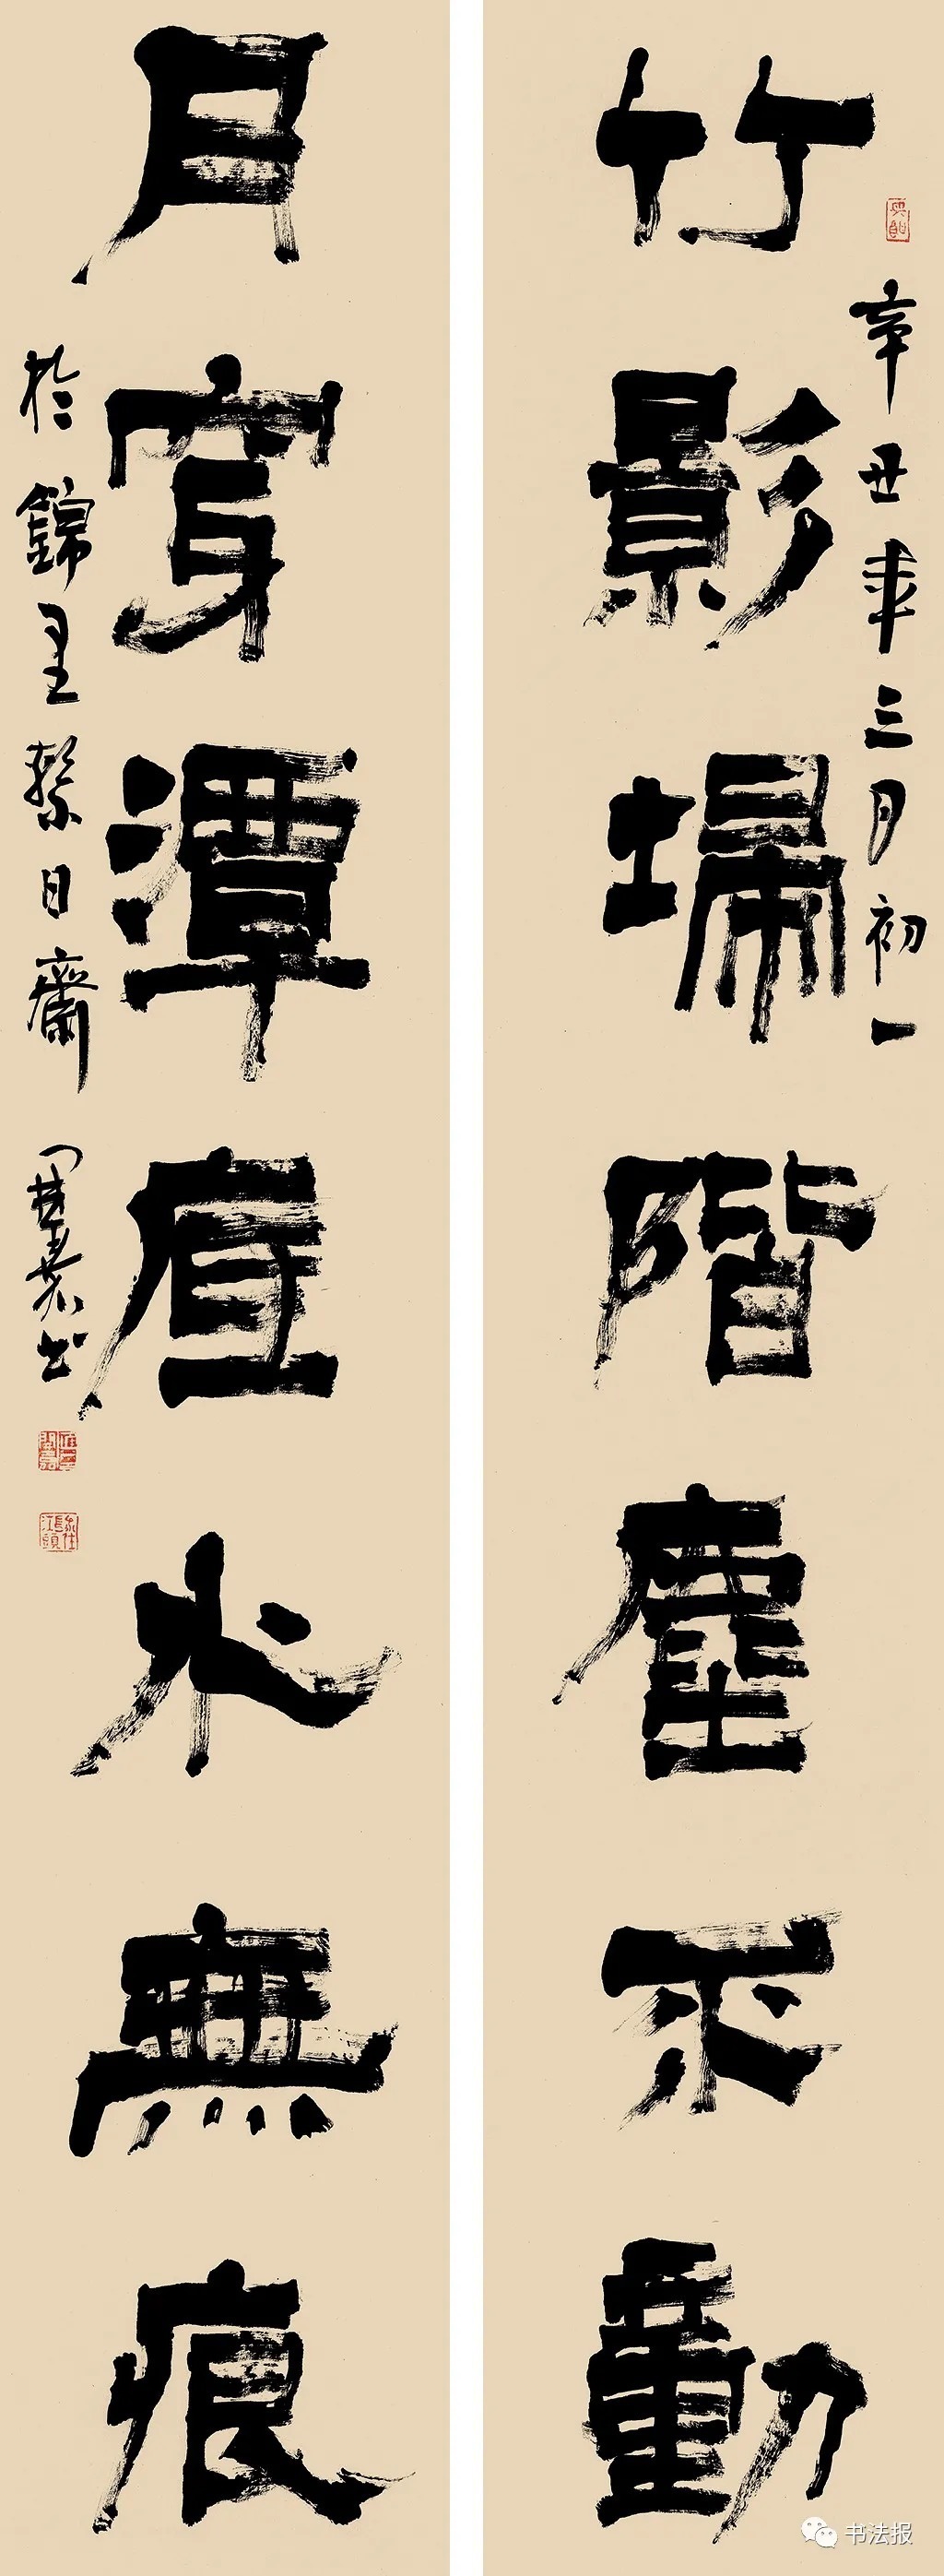 竹影埽階塵不動
辛丑年三月初一
月穿潭底水無痕
於錦里繫日齋
書法报